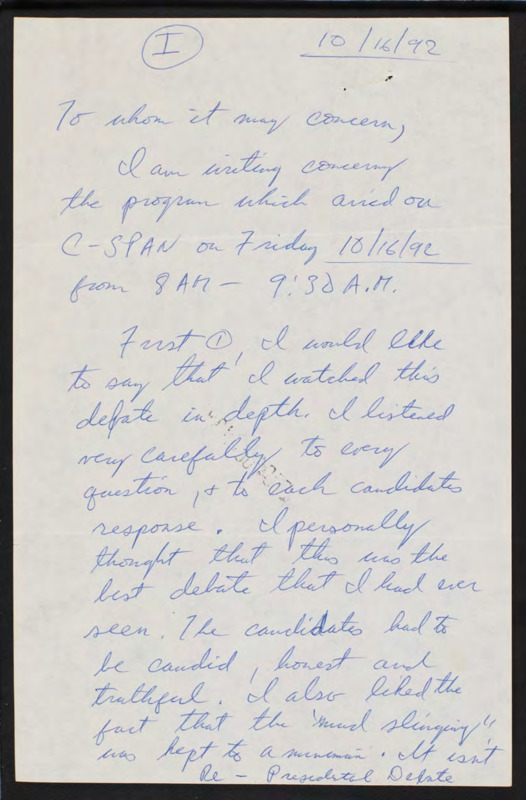 I
10/16/92
To whom it may concern,
I am writing concerng
the program which aired on
C-SPAN on Friday 10/16/92
from 8 AM - 9:30 A.M.
First ①, I would like
to say that I watched this
debate in depth. I listened
very carefully to every
question, & to each candidates
response. I personally
thought that this was the
best debate that I had ever
seen. The candidates had to
be candid, honest and
truthful. I also liked the
fact that the "mud slinging"
was kept to a minimum. It isn't
Re - Presidetal Debate